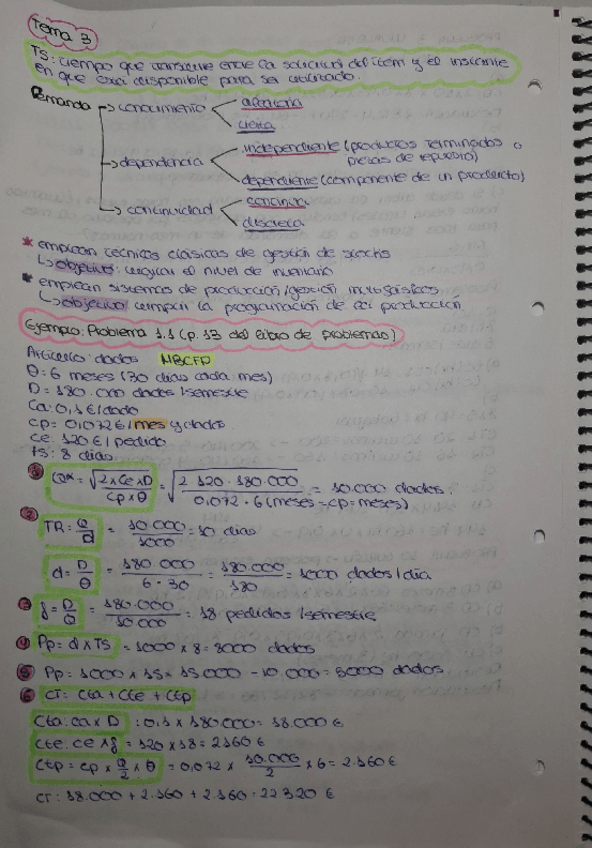 Tema 3
TS: tiempo que transcurre entre la solicitud del item y el instante
en que está disponible para ser utilizado.
Demanda
conocimiento
aleatoria
cierta
dependencia
independiente (productos terminados o
piezas de repuesto)
dependiente (componente de un producto)
continuidad
continua
discreta
* emplean técnicas clásicas de gestión de stocks
↳ objetivo: vigilar el nivel de inventario
* emplean sistemas de producción/gestión
↳ objetivo: cumplir la programación de la producción
Ejemplo: Problema 1.1 (p. 13 del libro de problemas)
Artículo: dados MBCFP
θ = 6 meses (30 días cada mes)
D = 180.000 dados/semestre
Ca: 0,1 €/dado
Cp = 0,072 €/mes y dados
Ce: 120 €/pedido
TS: 8 días
① Q* = √(2 x Ce x D / Cp x θ) = √(2 120 · 180.000 / 0,072 · 6 (meses → cp = meses)) = 10.000 dados.
② TR = Q/d = 10.000/1000 = 10 días
d = D/θ = 180 000/6 · 30 = 180.000/180 = 1000 dados/día
③ f = D/Q = 180.000/10.000 = 18 pedidos/semestre
④ Pp = d x TS = 1000 x 8 = 8000 dados
⑤ Pp = 1000 x 15 = 15 000 - 10.000 = 5000 dados.
⑥ CT: Cta + Cte + Ctp
Cta: ca x D : 0,1 x 180000 = 18.000 €
Cte: ce x f = 120 x 18 = 2160 €
Ctp = cp x Q/2 x θ = 0,072 x 10.000/2 x 6 = 2.160 €
CT: 18.000 + 2.160 + 2.160 = 22 320 €